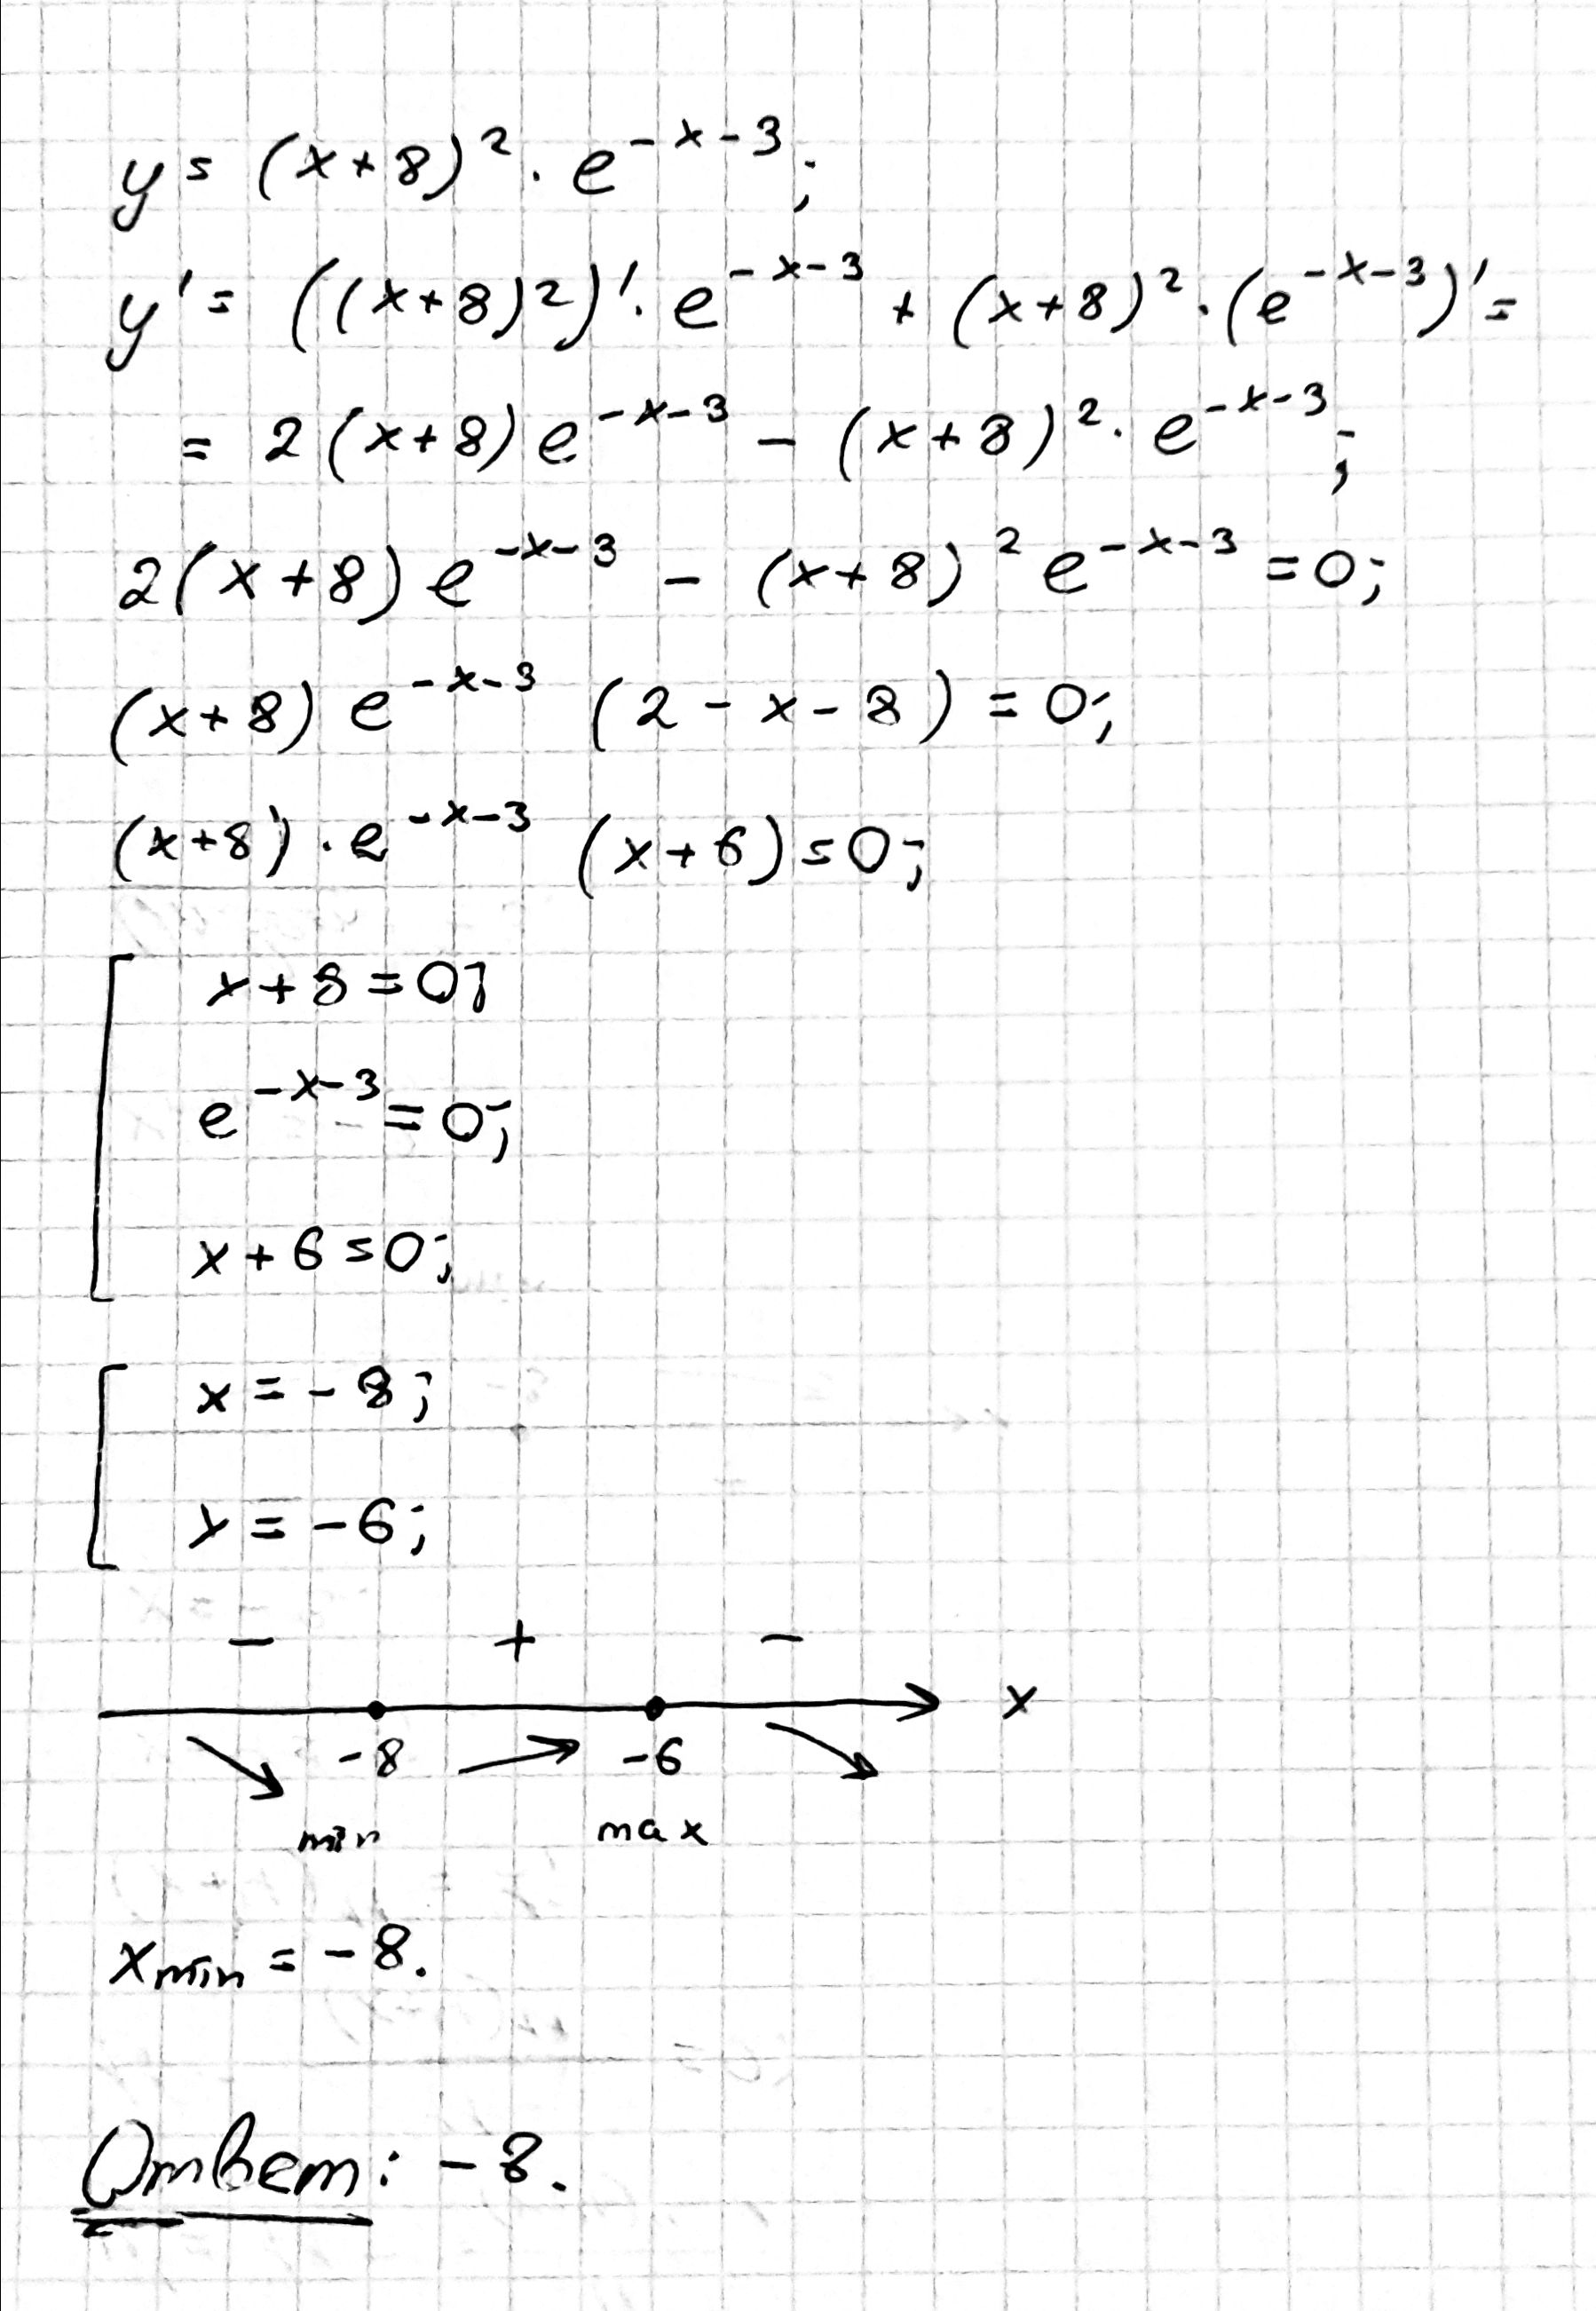 y = (x+8)² · e^{-x-3};
y' = ((x+8)²)' · e^{-x-3} + (x+8)² · (e^{-x-3})' =
= 2(x+8)e^{-x-3} - (x+8)² · e^{-x-3};
2(x+8)e^{-x-3} - (x+8)² e^{-x-3} = 0;
(x+8) e^{-x-3} (2-x-8) = 0;
(x+8) · e^{-x-3} (x+6) = 0;
x+8=0;
e^{-x-3} = 0;
x+6=0;
x = -8;
x = -6;
- + -
-8 -6 x
min max
x_{min} = -8.
Ответ: -8.